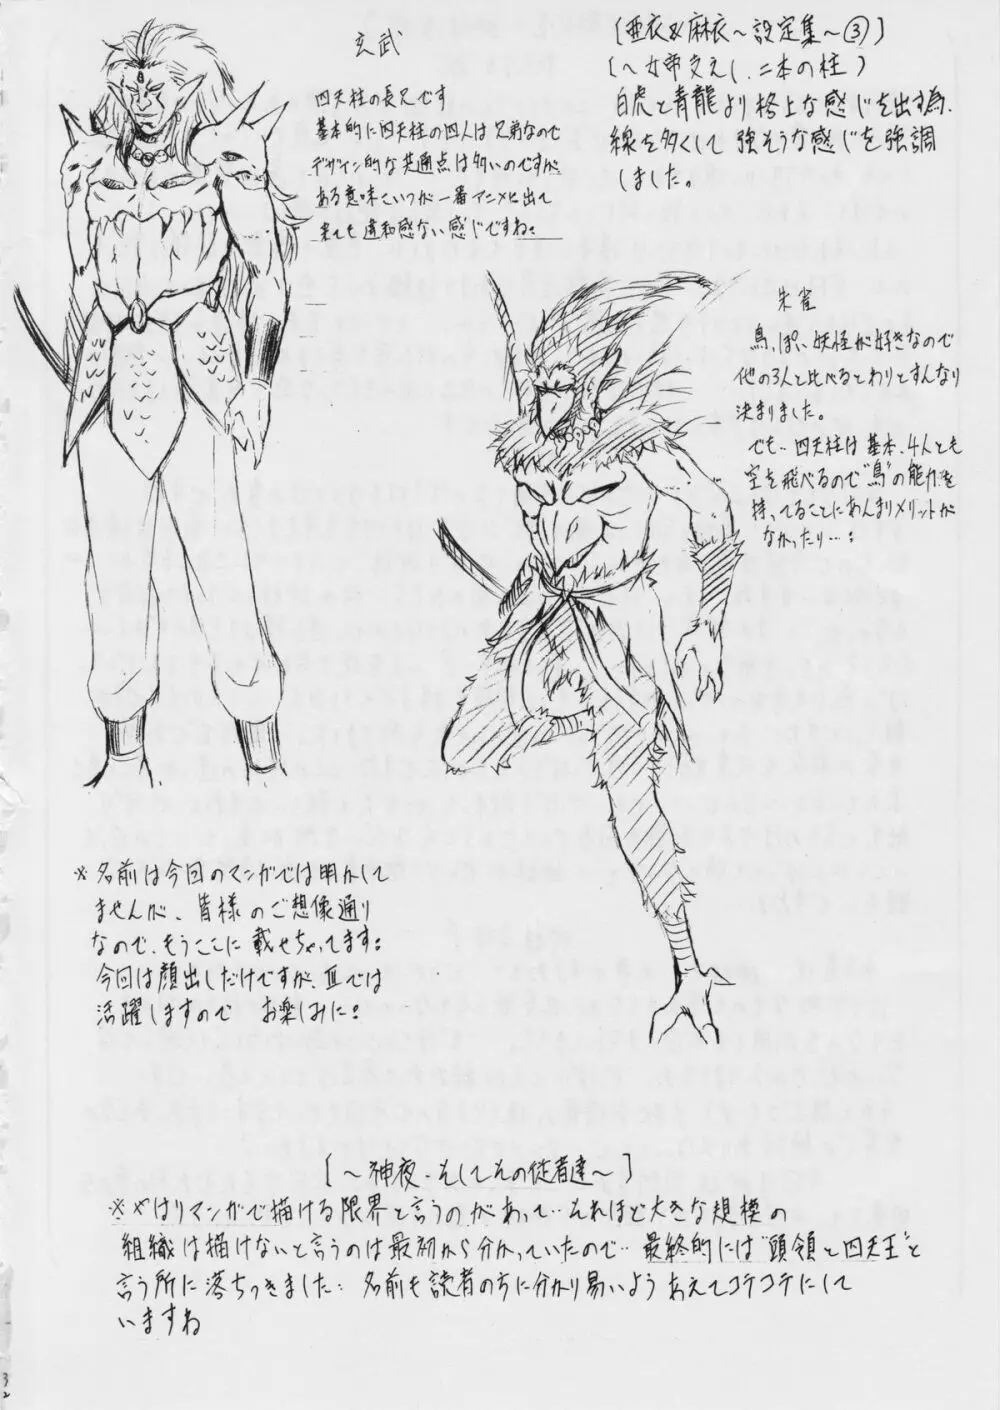 [亜衣&麻衣～設定集～③]
(～女帝支えし、二本の柱)
白虎と青龍より格上な感じを出す為、
線を多くして強そうな感じを強調
しました。
玄武
四天柱の長兄です
基本的に四天柱の四人は兄弟なので
デザイン的な共通点は多いのですが
ある意味こいつが一番アニメに出て
来ても違和感ない感じですね。
朱雀
鳥っぽい妖怪が好きなので
他の3人と比べるとわりとすんなり
決まりました。
でも‥四天柱は基本、4人とも
空を飛べるので"鳥"の能力を
持ってることにあんまりメリットが
なかったり…:
※名前は今回のマンガでは明かして
ませんが、皆様のご想像通り
なので、もうここに載せちゃってます:
今回は顔出しだけですが、Ⅲでは
活躍しますので お楽しみに:
[～神夜・そしてその従者達～]
※やはりマンガで描ける限界と言うのがあって‥それほど大きな規模の
組織は描けないと言うのは最初から分かっていたので‥最終的には"頭領と四天王"と
言う所に落ちつきました: 名前も読者の方に分かり易いようあえてコテコテにして
いますね
32